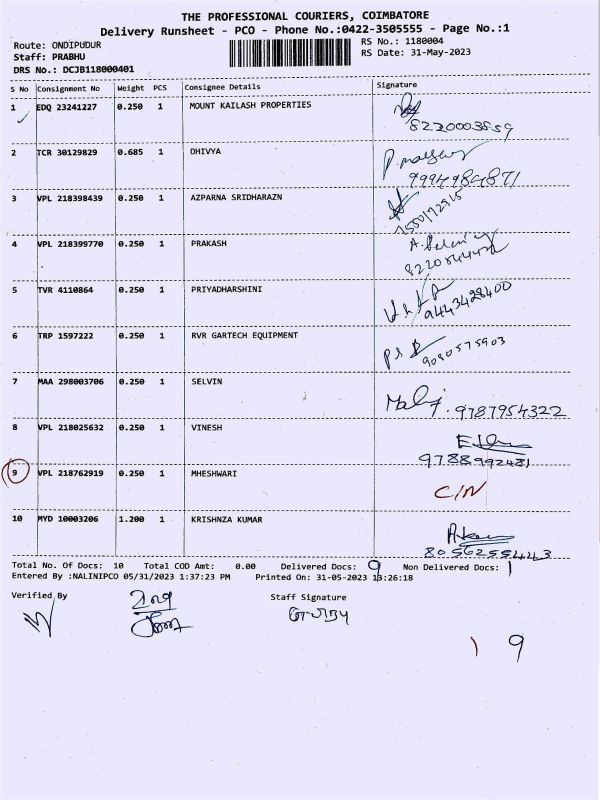 THE PROFESSIONAL COURIERS, COIMBATORE
Delivery Runsheet - PCO - Phone No.:0422-3505555 - Page No.:1
Route: ONDIPUDUR RS No.: 1180004
Staff: PRABHU RS Date: 31-May-2023
DRS No.: DCJB118000401
S No Consignment No Weight PCS Consignee Details Signature
1 EDQ 23241227 0.250 1 MOUNT KAILASH PROPERTIES
8220003859
2 TCR 30129829 0.685 1 DHIVYA
9994984871
3 VPL 218398439 0.250 1 AZPARNA SRIDHARAZN
4 VPL 218399770 0.250 1 PRAKASH
5 TVR 4110864 0.250 1 PRIYADHARSHINI
9443428400
6 TRP 1597222 0.250 1 RVR GARTECH EQUIPMENT
9080575903
7 MAA 298003706 0.250 1 SELVIN
9787954322
8 VPL 218025632 0.250 1 VINESH
9788992481
9 VPL 218762919 0.250 1 MHESHWARI
C/N
10 MYD 10003206 1.200 1 KRISHNZA KUMAR
8056255443
Total No. Of Docs: 10 Total COD Amt: 0.00 Delivered Docs: 9 Non Delivered Docs: 1
Entered By :NALINIPCO 05/31/2023 1:37:23 PM Printed On: 31-05-2023 13:26:18
Verified By Staff Signature
1 9